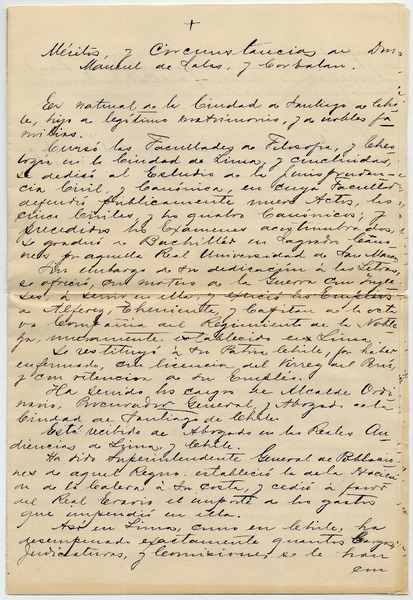 +
Méritos, y Circunstancias de Don
Manuel de Salas, y Corbalan.
Es natural de la Ciudad de Santiago de Chi-
le, hijo de legítimo matrimonio, y de nobles fa-
milias.
Cursó las Facultades de Filosofía, y Theo-
logia en la Ciudad de Lima, y concluidas,
se dedicó al Estudio de la Jurisprudencia
Civil, y Canónica, en cuya Facultad
defendió publicamente nueve Actos, los
cinco Civiles, y los quatro Canónicos; y
precedidos los Exámenes acostumbrados,
se graduó de Bachiller en Sagrados Cáno-
nes, por aquella Real Universidad de San Marcos.
Sin embargo de su dedicacion á las Letras,
se ofreció, con motivo de la Guerra con Ingle-
ses, á servir en ella, y exerció los Empleos
de Alferez, Theniente, y Capitan de la octa-
va Compañia del Regimiento de la Noble-
za, nuevamente establecido en Lima.
Se restituyó á su Patria Chile, por haber
enfermado, con licencia del Virrey del Perú,
y con retencion de su Empleo.
Ha servido los cargos de Alcalde Ordi-
nario, Procurador General, y Abogado de la
Ciudad de Santiago de Chile.
Está recibido de Abogado en las Reales Au-
diencias de Lima, y Chile.
Ha sido Superintendente General de Poblacio-
nes de aquel Reyno: estableció la de la Hacien-
da de la Calera á su costa, y cedió á favor
del Real Erario el importe de los gastos
que impendió en ella.
Asi en Lima, como en Chile, ha
desempeñado exactamente quantos Cargos,
Judicaturas, y Comisiones se le han
con